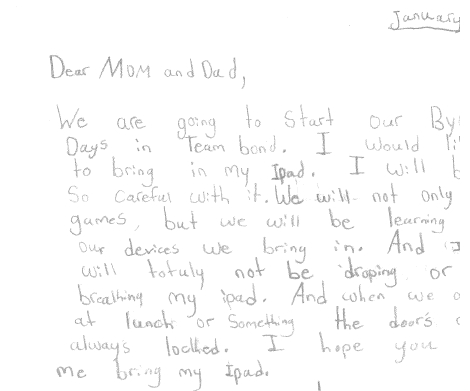 January
Dear Mom and Dad,
We are going to Start our
Days in Team bond. I would
to bring in my Ipad. I will
So Careful with it. We will not only
games, but we will be learning
our devices we bring in. And I
will totuly not be droping or
breathing my ipad. And when we
at lunch or Something the doors
always locked. I hope you
me bring my Ipad.